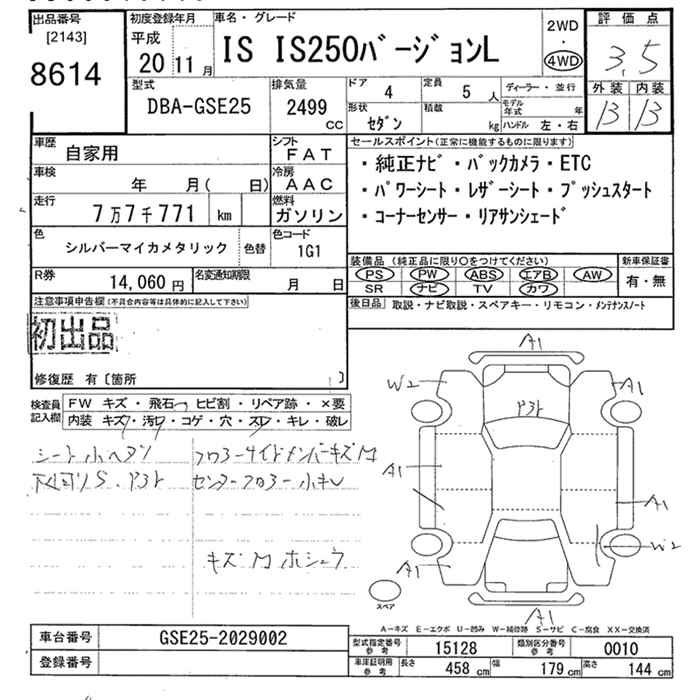 出品番号
[2143]
8614
初度登録年月
平成
20 11月
車名・グレード
IS IS250バージョンL
2WD
・
4WD
評価点
3.5
外装 内装
B B
型式
DBA-GSE25
排気量
2499
CC
ドア 4
定員 5人
形状 セダン
積載 kg
ディーラー・並行
モデル年式 年
ハンドル 左・右
車歴 自家用
シフト FAT
車検 年 月( 日)
冷房 AAC
走行 7万7千771 km
燃料 ガソリン
色 シルバーマイカメタリック 色替
色コード 1G1
R券 14,060円
名変通知期限 月 日
セールスポイント(正常に機能するものに限ります)
・純正ナビ・バックカメラ・ETC
・パワーシート・レザーシート・プッシュスタート
・コーナーセンサー・リアサンシェード
装備品 (純正品に限り○をつけてください)
PS PW ABS エアB AW
SR ナビ TV カワ
新車保証書
有・無
後日品 取説・ナビ取説・スペアキー・リモコン・メンテナンスノート
注意事項申告欄(不具合内容等は具体的に記入して下さい)
初出品
修復歴 有〔箇所 〕
検査員記入欄
FW キズ・飛石・ヒビ割・リペア跡・×要
内装 キズ・汚レ・コゲ・穴・スレ・キレ・破レ
シート小ヘタリ
下廻りS.
フロアーサイドメンバーキズM
センターフロアー小キレ
キズM ホシュウ
A1
W2
A1
A1
A1
A1
W2
A1
スペア
A1
A-キズ E-エクボ U-凹み W-補修跡 S-サビ C-腐食 XX-交換済
車台番号 GSE25-2029002
登録番号
型式指定番号 参考 15128
類別区分番号 参考 0010
車庫証明用 参考 長さ 458cm 幅 179cm 高さ 144cm